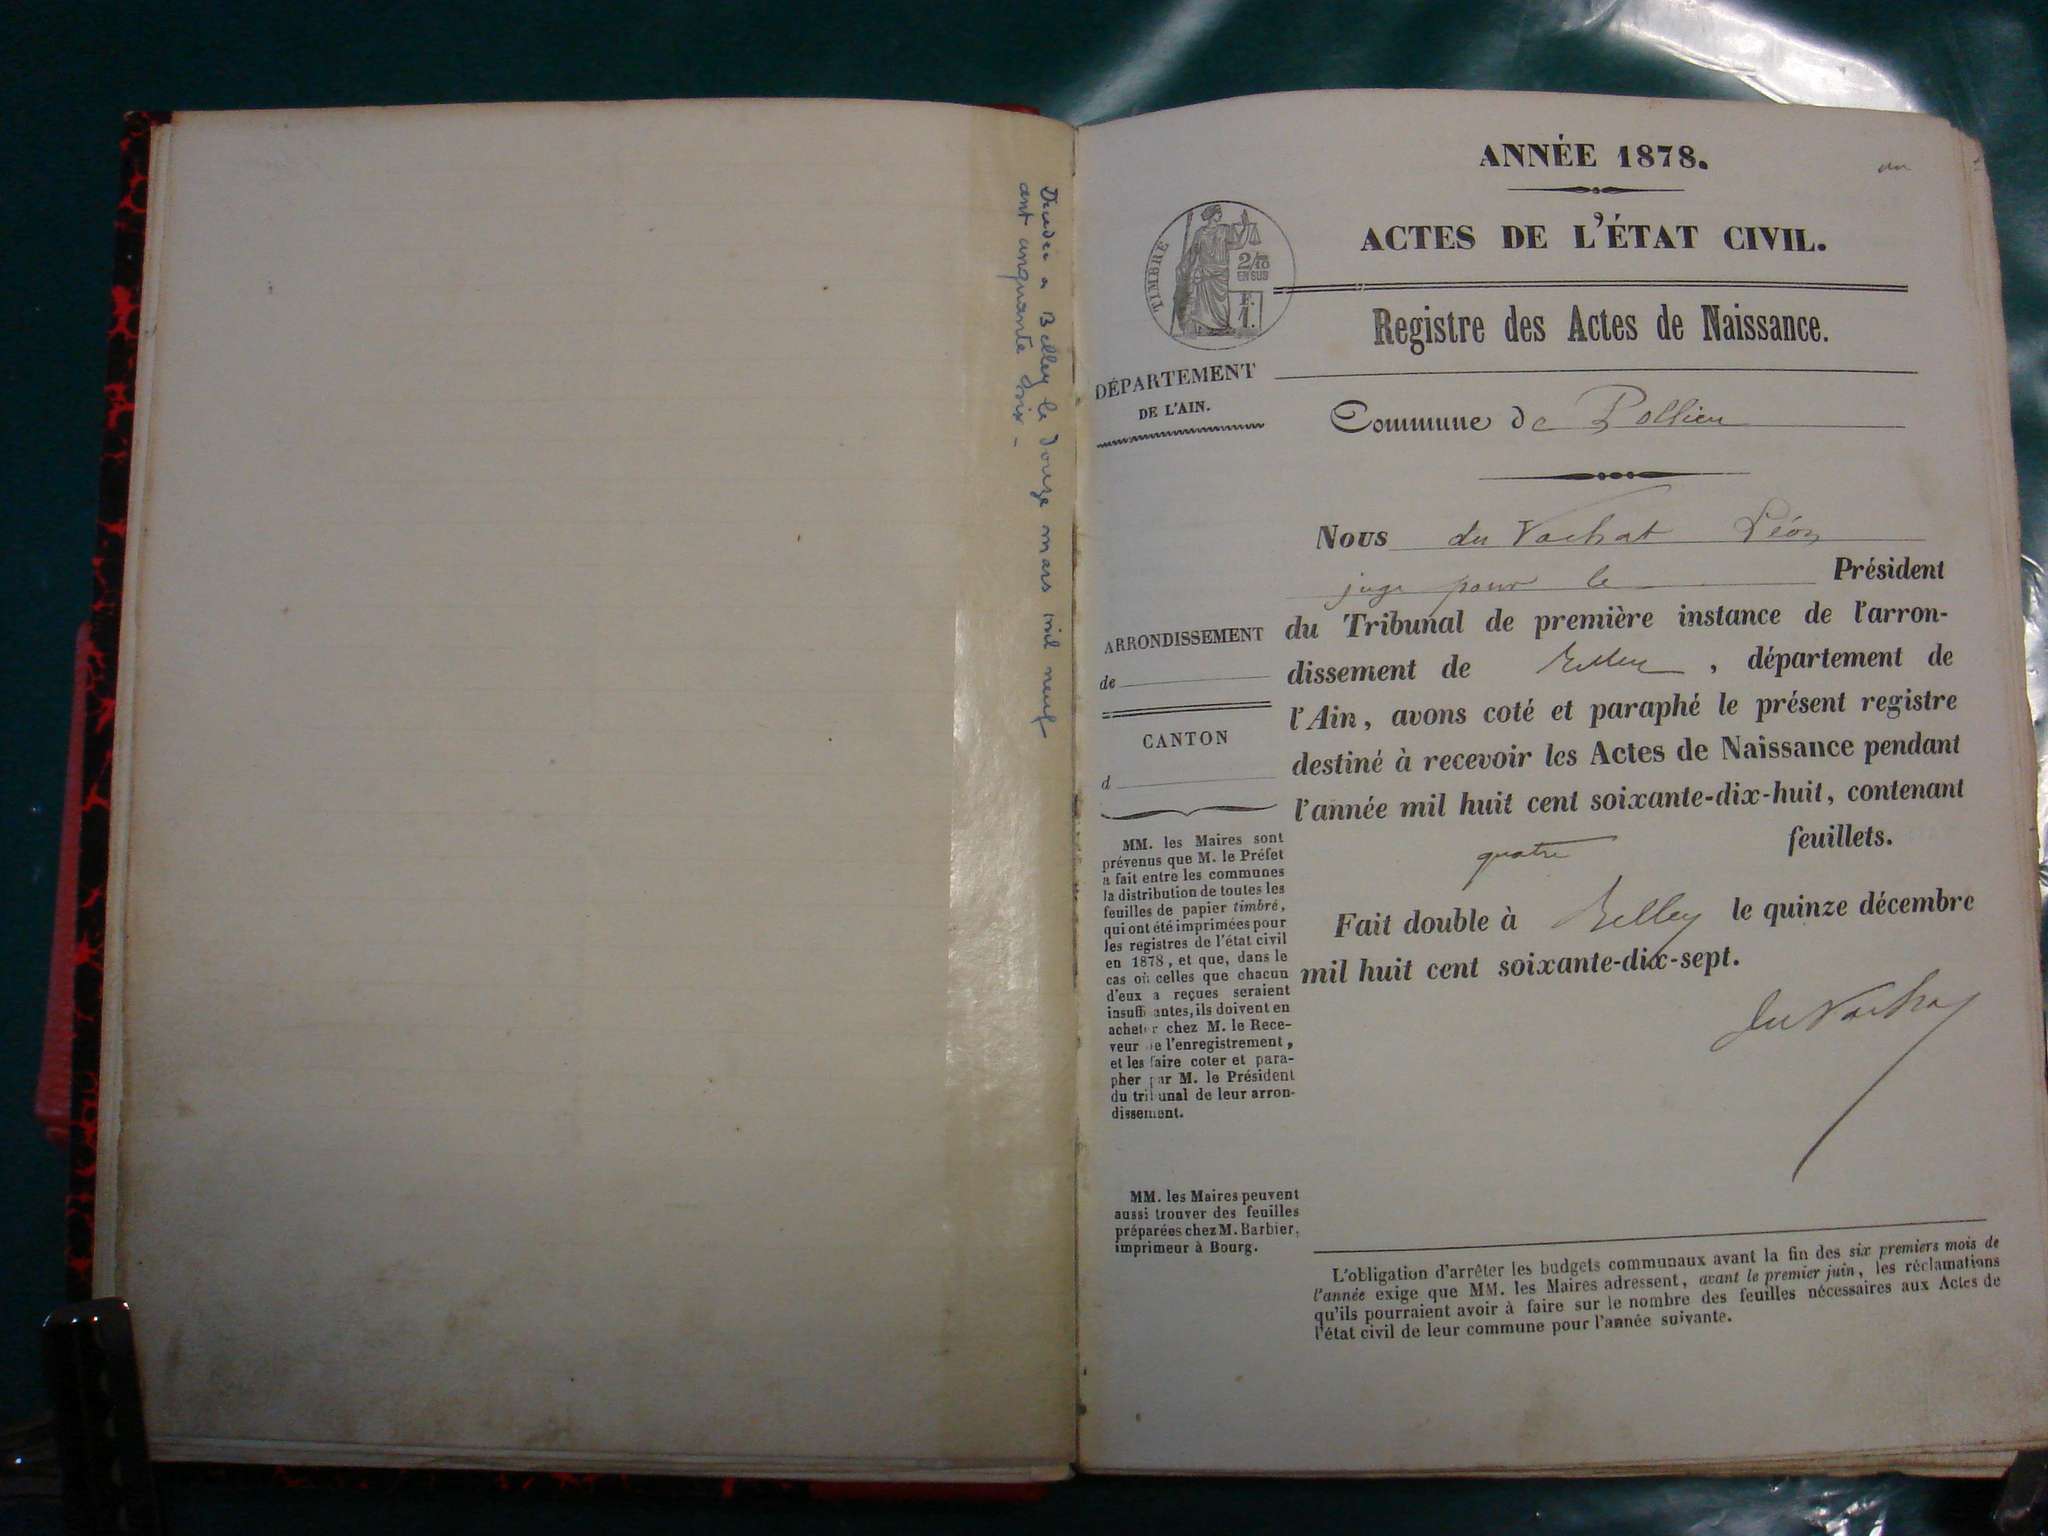 Décédée à Belley le douze mars mil neuf
cent cinquante six -
ANNÉE 1878.
un
ACTES DE L'ÉTAT CIVIL.
TIMBRE
2/10
EN SUS
F.
1.
Registre des Actes de Naissance.
DÉPARTEMENT
DE L'AIN.
Commune de Pollieu
Nous du Vachat Léon
juge pour le Président
du Tribunal de première instance de l'arron-
dissement de Belley, département de
l'Ain, avons coté et paraphé le présent registre
destiné à recevoir les Actes de Naissance pendant
l'année mil huit cent soixante-dix-huit, contenant
quatre feuillets.
Fait double à Belley le quinze décembre
mil huit cent soixante-dix-sept.
du Vachat
ARRONDISSEMENT
de
CANTON
d
MM. les Maires sont
prévenus que M. le Préfet
a fait entre les communes
la distribution de toutes les
feuilles de papier timbré,
qui ont été imprimées pour
les registres de l'état civil
en 1878, et que, dans le
cas où celles que chacun
d'eux a reçues seraient
insuffisantes, ils doivent en
acheter chez M. le Rece-
veur de l'enregistrement,
et les faire coter et para-
pher par M. le Président
du tribunal de leur arron-
dissement.
MM. les Maires peuvent
aussi trouver des feuilles
préparées chez M. Barbier,
imprimeur à Bourg.
L'obligation d'arrêter les budgets communaux avant la fin des six premiers mois de
l'année exige que MM. les Maires adressent, avant le premier juin, les réclamations
qu'ils pourraient avoir à faire sur le nombre des feuilles nécessaires aux Actes de
l'état civil de leur commune pour l'année suivante.